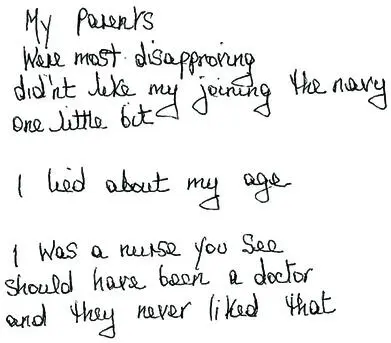 My Parents
Were most disapproving
didn't like my joining the navy
one little bit
I lied about my age
I was a nurse you see
should have been a doctor
and they never liked that